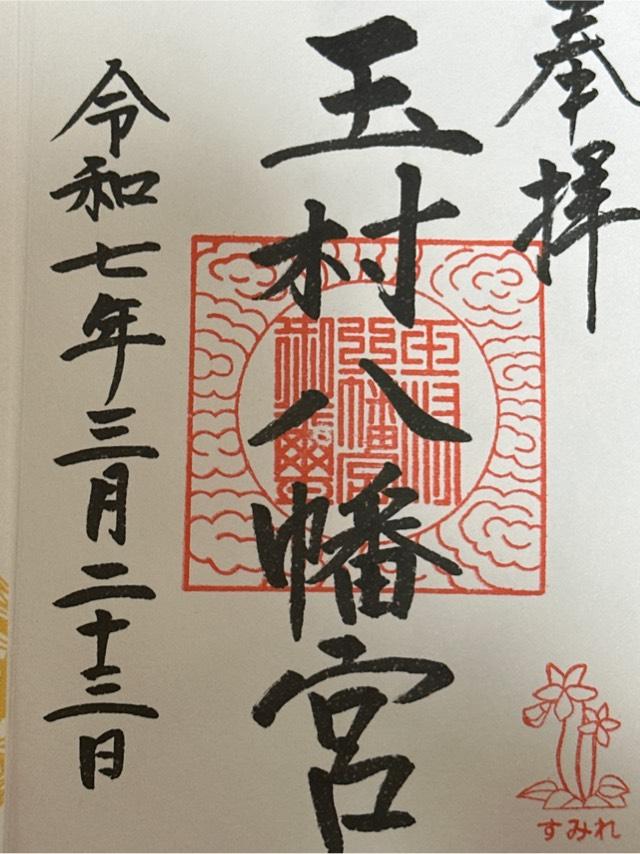 奉拝
玉村八幡宮
令和七年三月二十三日
すみれ